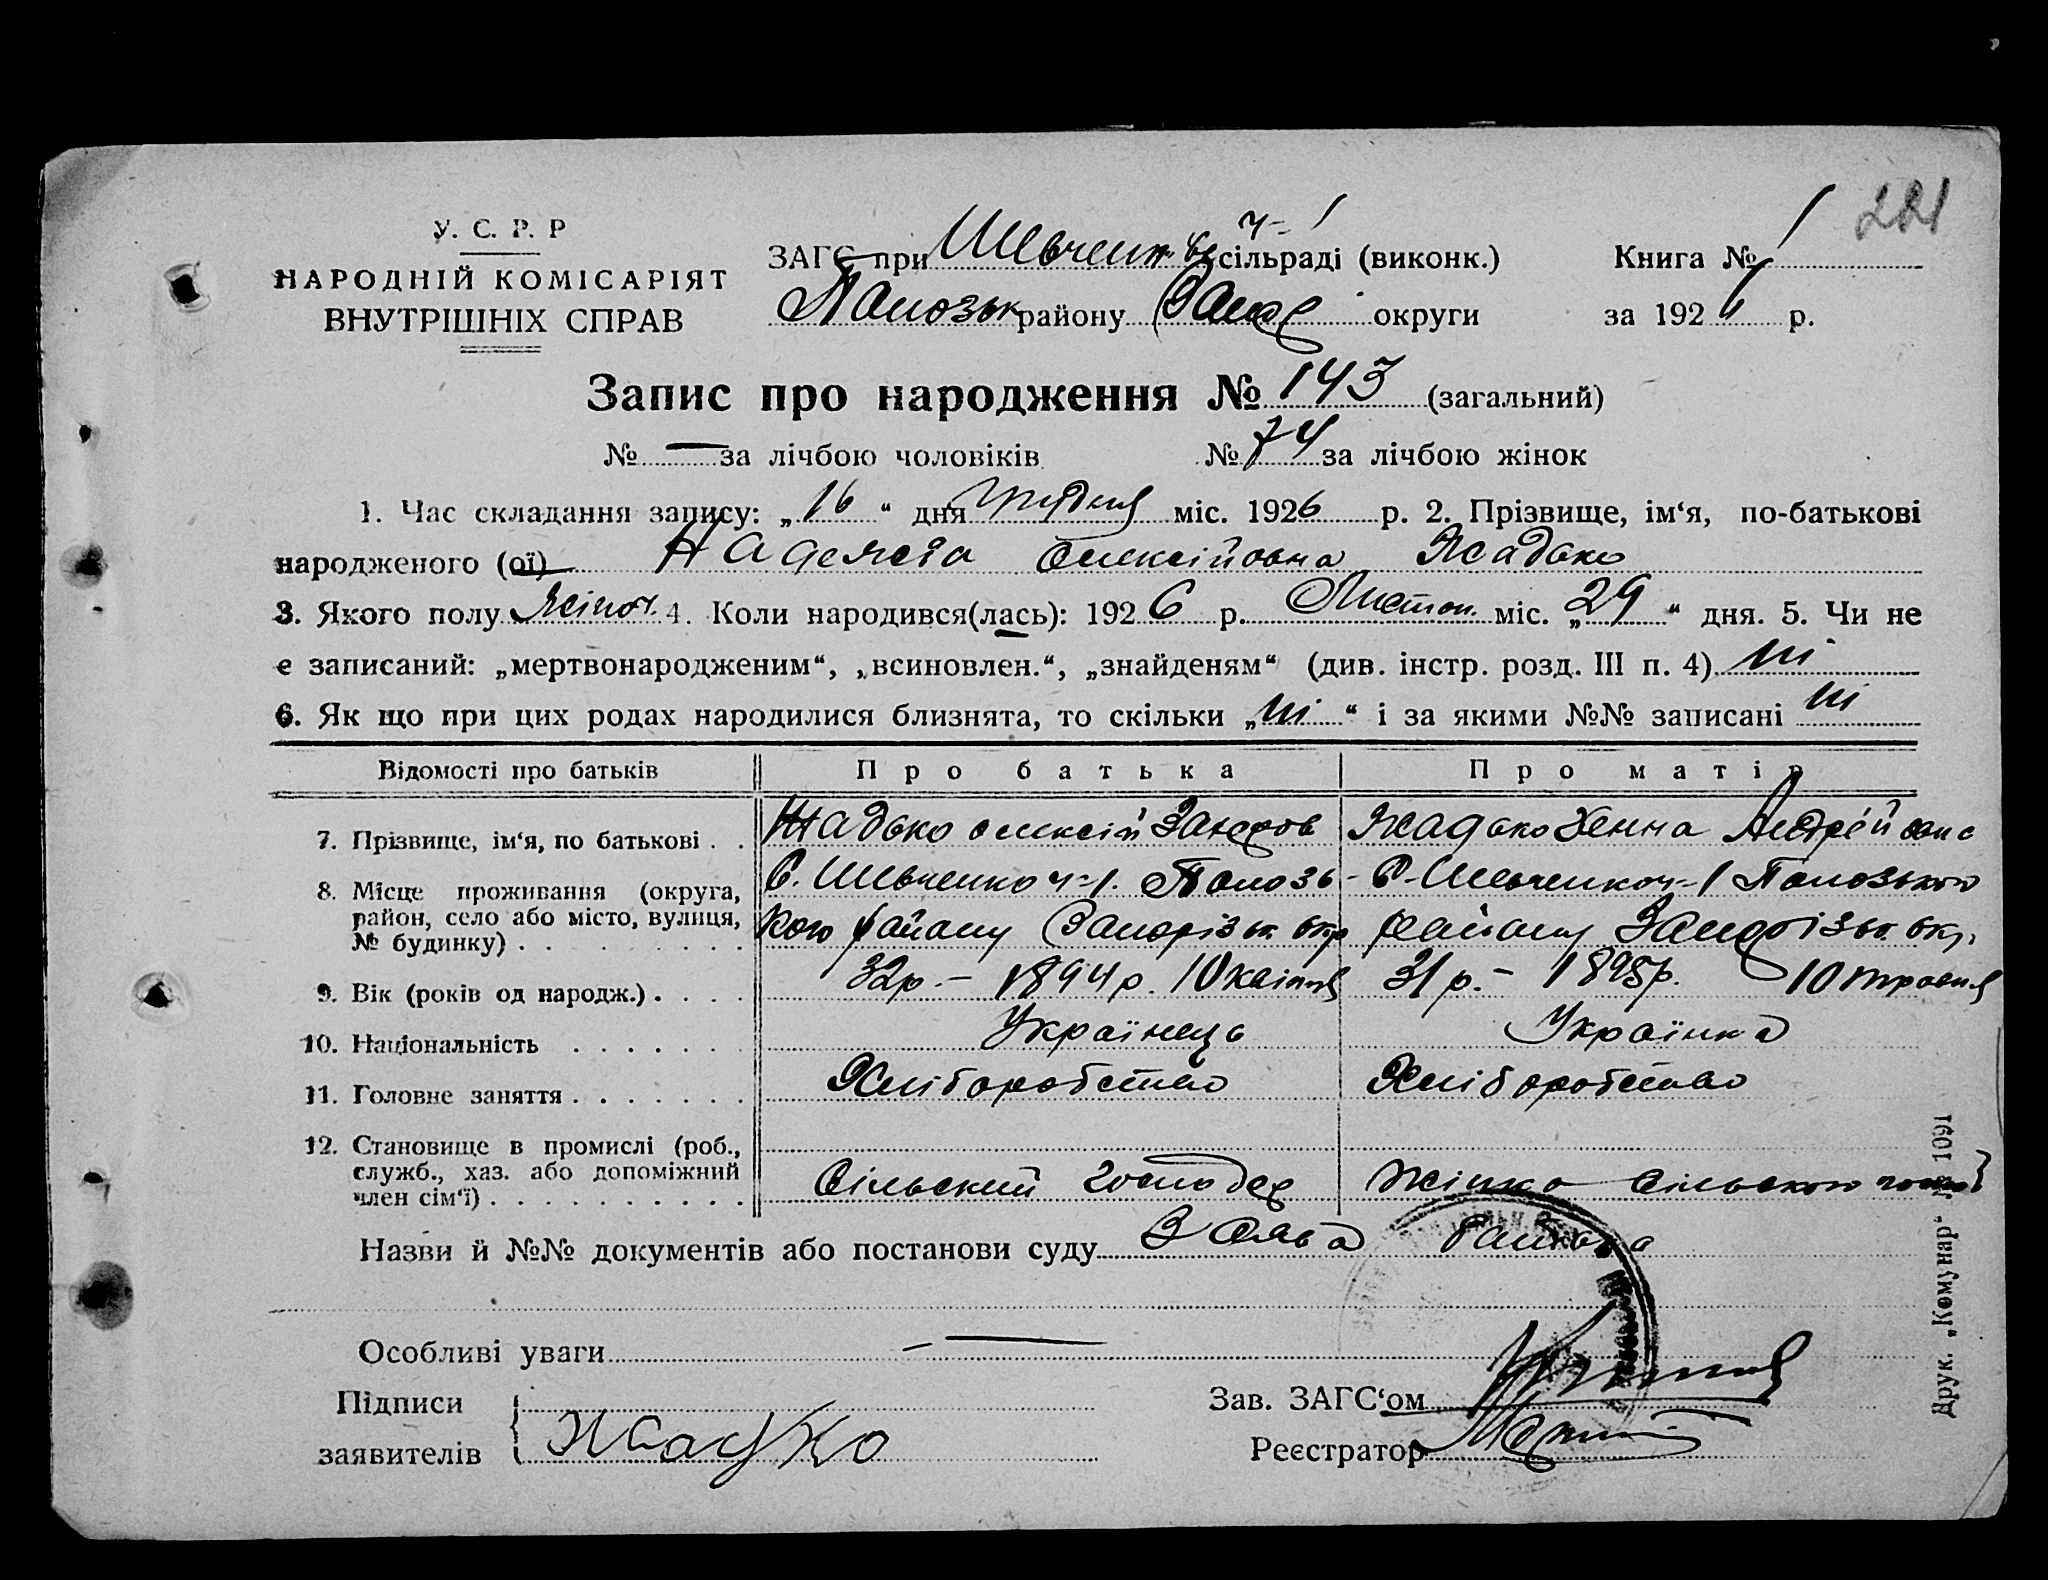 221
У. С. Р. Р
НАРОДНІЙ КОМІСАРІЯТ
ВНУТРІШНІХ СПРАВ
ч=1
ЗАГС при Шевченк. сільраді (виконк.)
Полозьк району Запор округи
Книга № 1
за 192 р.
Запис про народження № 143 (загальний)
№ — за лічбою чоловіків № 74 за лічбою жінок
1. Час складання запису: „16“ дня Грудня міс. 1926 р. 2. Прізвище, ім‘я, по-батькові
народженого (ої) Надежда Олексійовна Жадько
3. Якого полу Жіноч. 4. Коли народився(лась): 1926 р. Листоп. міс. „29“ дня. 5. Чи не
є записаний: „мертвонародженим“, „всиновлен.“, „знайденям“ (див. інстр. розд. III п. 4) ні
6. Як що при цих родах народилися близнята, то скільки „ні“ і за якими №№ записані ні
Відомості про батьків Про батька Про матір
7. Прізвище, ім‘я, по батькові . . Жадько Олексій Захаров Жадько Ханна Андрейовна
8. Місце проживання (округа, С. Шевченко ч=1. Полозь- С. Шевченко ч=1 Полозького
район, село або місто, вулиця, кого району Запорізьк. окр району Запорізьк. окр.
№ будинку) . . . . . . . .
9. Вік (років од народж.) . . . . 32р. – 1894р. 10 квітня 31р. – 1895р. 10 травня
10. Національність . . . . . . Українець Українка
11. Головне заняття . . . . . . . Хліборобство Хліборобство
12. Становище в промислі (роб.,
служб., хаз. або допоміжний Сільський господар Жінка сільського госпо
член сім‘ї) . . . . . . . . . .
Назви й №№ документів або постанови суду Заява батька
Особливі уваги —
Підписи
заявителів Жадько
Зав. ЗАГС‘ом
Реєстратор
Друк. „Комунар“ № 1091